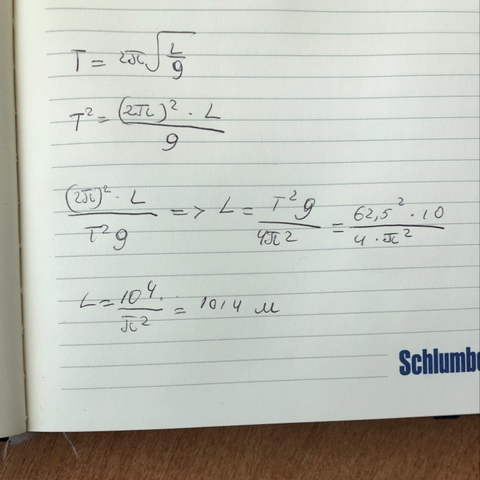 T = 2π√(L/g)
T² = (2π)² · L / g
(2π)² · L / T²g => L = T²g / 4π² = 62,5² · 10 / 4 · π²
L = 10⁴ / π² = 1014 м